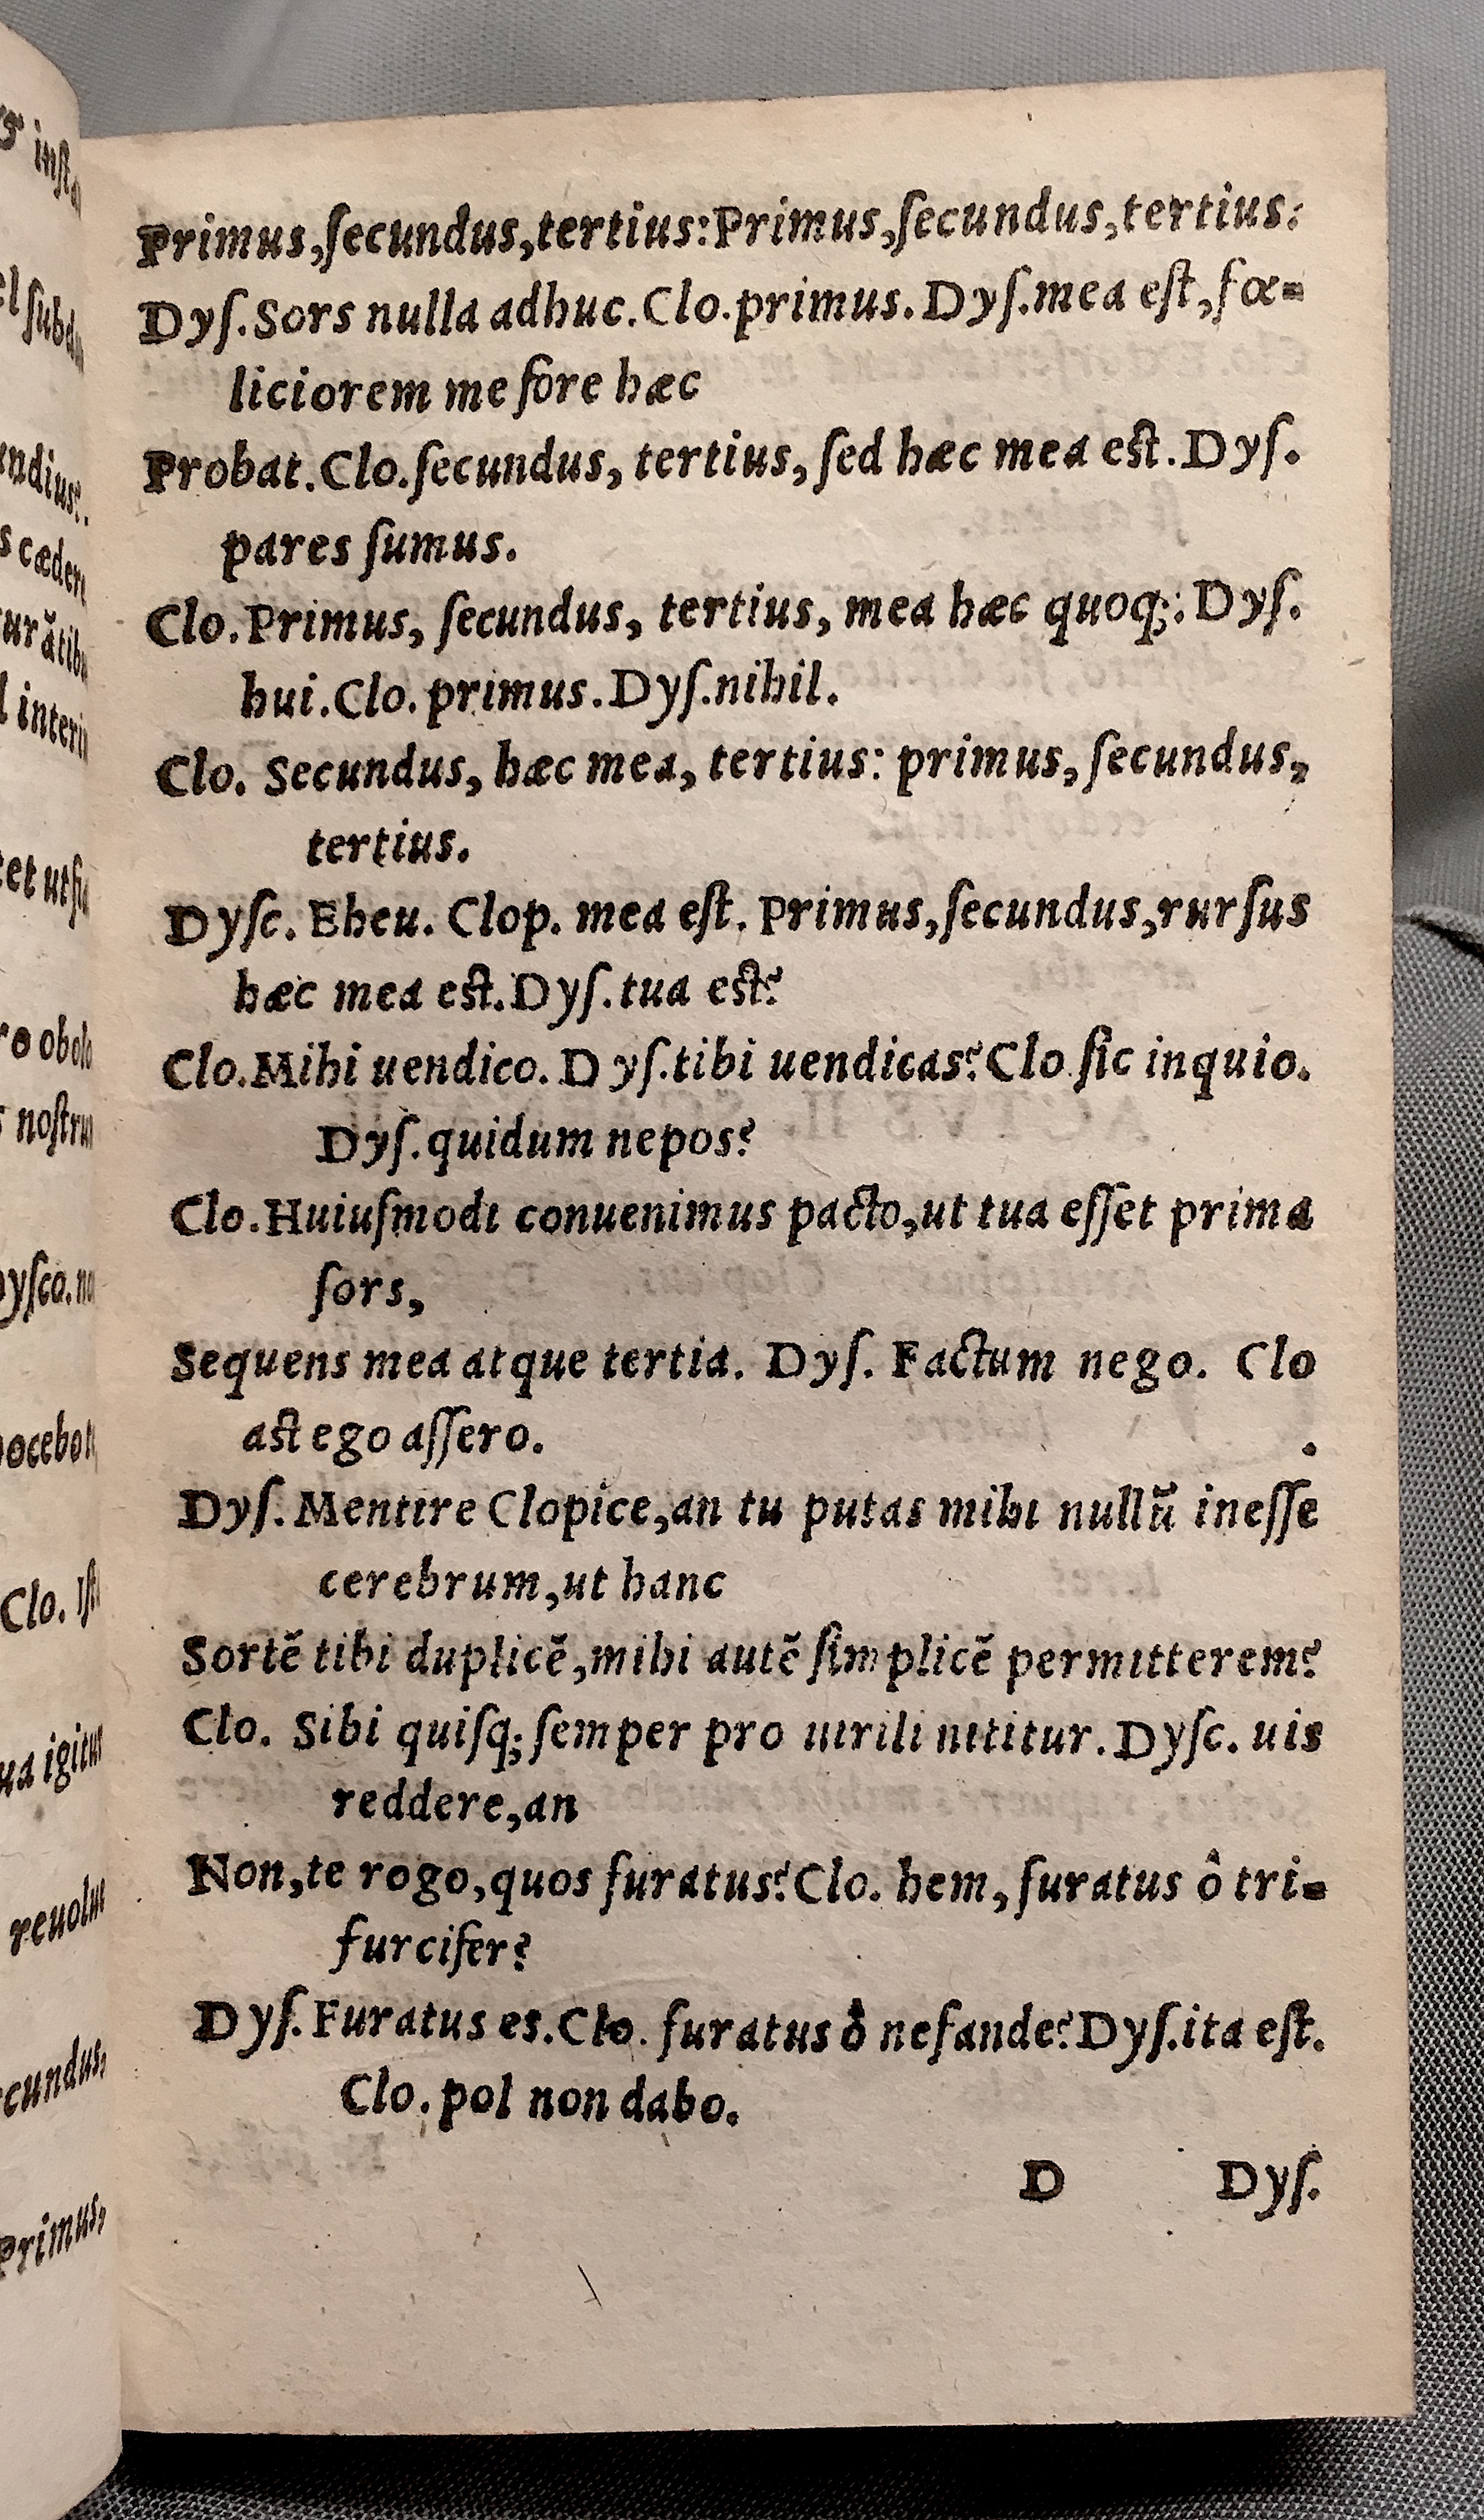 Primus,ſecundus,tertius:Primus,ſecundus,tertius:
Dyſ.Sors nulla adhuc.Clo.primus.Dyſ.mea eſt,fœ=
liciorem me fore hæc
Probat.Clo.ſecundus, tertius, ſed hæc mea eſt.Dyſ.
pares ſumus.
Clo.Primus, ſecundus, tertius, mea hæc quoq;: Dyſ.
hui.Clo.primus.Dyſ.nihil.
Clo. Secundus, hæc mea, tertius: primus, ſecundus,
tertius.
Dyſc. Eheu. Clop. mea eſt. Primus,ſecundus,rurſus
hæc mea eſt.Dyſ.tua eſt?
Clo.Mihi uendico.Dyſ.tibi uendicas?Clo ſic inquio.
Dyſ.quidum nepos?
Clo.Huiuſmodi conuenimus pacto,ut tua eſſet prima
ſors,
Sequens mea atque tertia. Dyſ. Factum nego. Clo
aſt ego aſſero. .
Dyſ.Mentire Clopice,an tu putas mihi nullū ineſſe
cerebrum,ut hanc
Sortē tibi duplicē,mihi autē ſimplicē permitterem?
Clo. Sibi quiſq; ſemper pro uirili nititur.Dyſc. uis
reddere,an
Non,te rogo,quos furatus?Clo. hem, furatus ô tri=
furcifer?
Dyſ.Furatus es.Clo. furatus ô nefande?Dyſ.ita eſt.
Clo.pol non dabo.
D Dyſ.